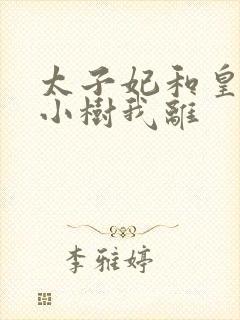 太子妃和皇
小樹我離
李雅婷